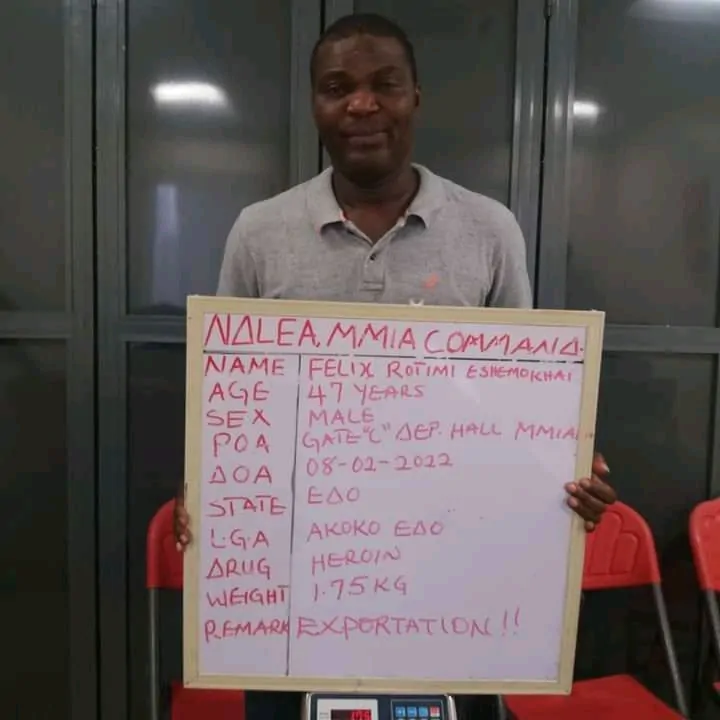 NDLEA, MMIA COMMAND.
NAME FELIX ROTIMI ESHEMOKHAI
AGE 47 YEARS
SEX MALE
POA GATE "C" DEP. HALL MMIA
DOA 08-02-2022
STATE EDO
L.G.A AKOKO EDO
DRUG HEROIN
WEIGHT 1.75KG
REMARK EXPORTATION!!